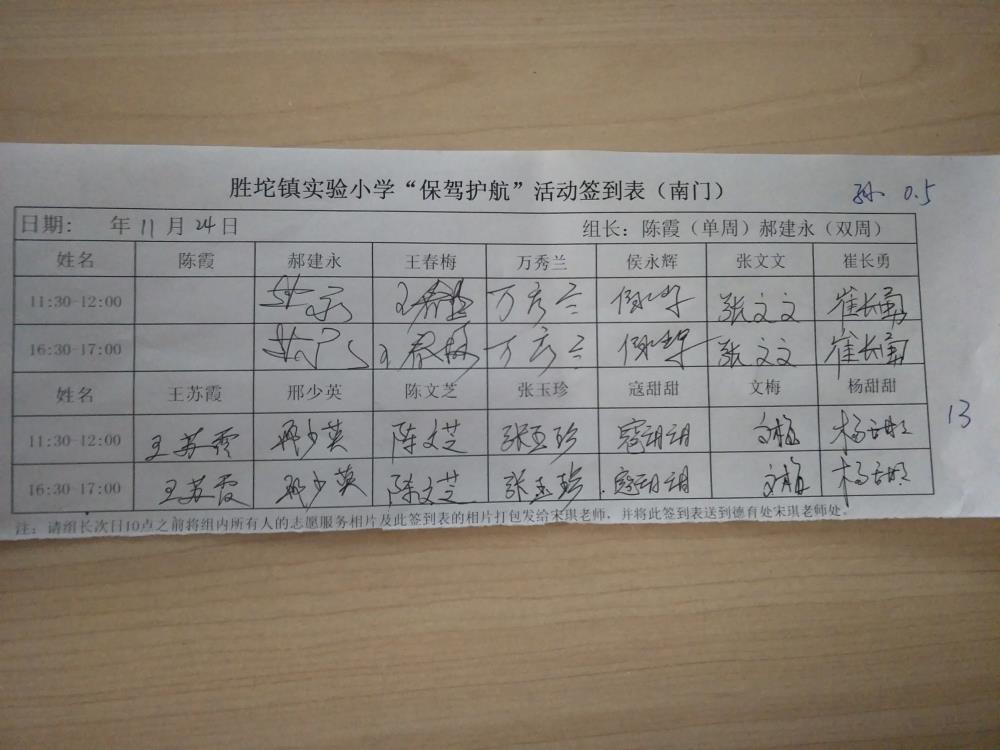 胜坨镇实验小学“保驾护航”活动签到表（南门） 孙 0.5
日期： 年 11 月 24 日 组长：陈霞（单周）郝建永（双周）
姓名 陈霞 郝建永 王春梅 万秀兰 侯永辉 张文文 崔长勇
11:30-12:00 王春梅 万秀兰 张文文 崔长勇
16:30-17:00 王春梅 万秀兰 张文文 崔长勇
姓名 王苏霞 邢少英 陈文芝 张玉珍 寇甜甜 文梅 杨甜甜
13
11:30-12:00 王苏霞 邢少英 陈文芝 张玉珍 寇甜甜 文梅 杨甜甜
16:30-17:00 王苏霞 邢少英 陈文芝 张玉珍 寇甜甜 文梅 杨甜甜
注：请组长次日10点之前将组内所有人的志愿服务相片及此签到表的相片打包发给宋琪老师，并将此签到表送到德育处宋琪老师处。